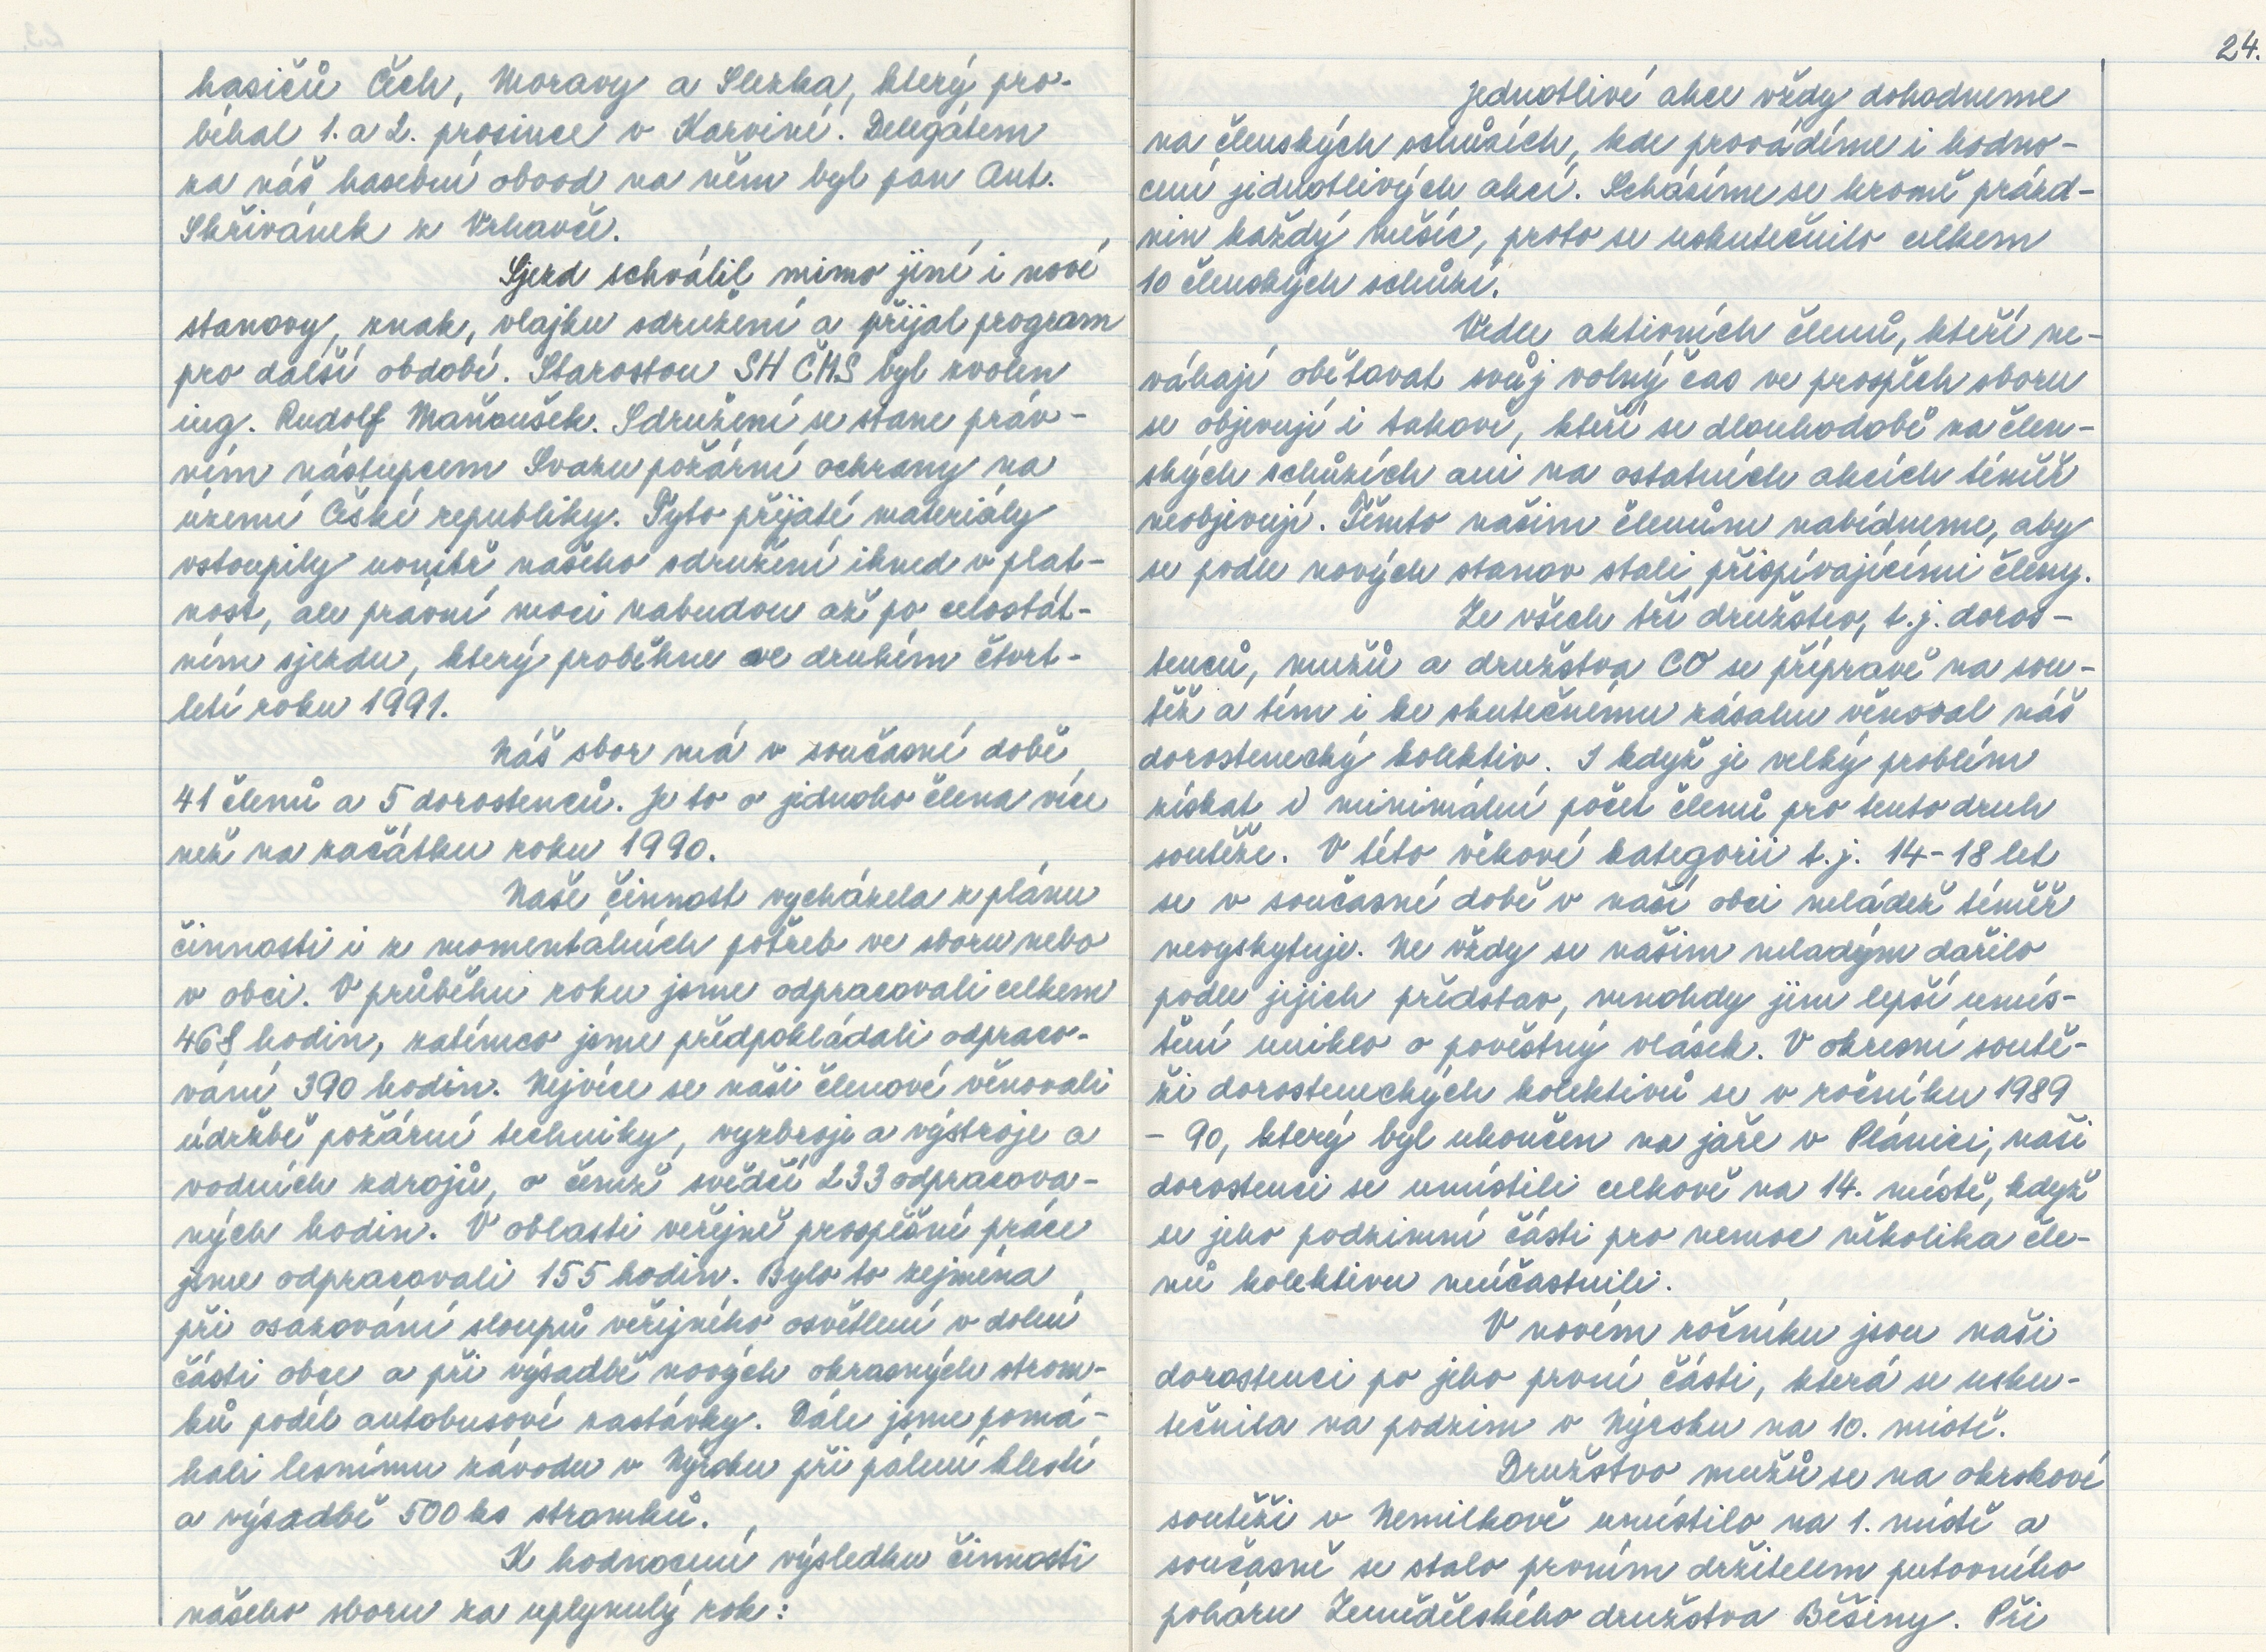 hasičů Čech, Moravy a Slezka, který pro-
běhal 1. a 2. prosince v Karviné. Delegátem
za náš hasební obvod na něm byl pan Ant.
Skřivánek z Vrhavče.
Sjezd schválil mimo jiné i nové
stanovy, znak, vlajku sdružení a přijal program
pro další období. Starostou SH ČMS byl zvolen
ing. Rudolf Maňoušek. Sdružení se stane práv-
ním nástupcem Svazu požární ochrany na
území České republiky. Tyto přijaté materiály
vstoupily uvnitř našeho sdružení ihned v plat-
nost, ale právní moci nabudou až po celostát-
ním sjezdu, který proběhne ve druhém čtvrt-
letí roku 1991.
Náš sbor má v současné době
41 členů a 5 dorostenců. Je to o jednoho člena více
než na začátku roku 1990.
Naše činnost vycházela z plánu
činnosti i z momentálních potřeb ve sboru nebo
v obci. V průběhu roku jsme odpracovali celkem
468 hodin, zatímco jsme předpokládali odpraco-
vání 390 hodin. Nejvíce se naši členové věnovali
údržbě požární techniky, vyzbroje a výstroje a
vodních zdrojů, o čemž svědčí 233 odpracova-
ných hodin. V oblasti veřejně prospěšné práce
jsme odpracovali 155 hodin. Bylo to zejména
při osazování sloupů veřejného osvětlení v dolní
části obce a při výsadbě nových okrasných strom-
ků podél autobusové zastávky. Dále jsme pomá-
hali lesnímu závodu v Nýrsku při pálení klestí
a výsadbě 500 ks stromků.
K hodnocení výsledku činnosti
našeho sboru za uplynulý rok:
24.
Jednotlivé akce vždy dohodneme
na členských schůzích, kde provádíme i hodno-
cení jednotlivých akcí. Scházíme se kromě prázd-
nin každý měsíc, proto se uskutečnilo celkem
10 členských schůzí.
Vedle aktivních členů, kteří ne-
váhají obětovat svůj volný čas ve prospěch sboru
se objevují i takoví, kteří se dlouhodobě na člen-
ských schůzích ani na ostatních akcích téměř
neobjevují. Těmto našim členům nabídneme, aby
se podle nových stanov stali přispívajícími členy.
Ze všech tří družstev, t.j. doros-
tenců, mužů a družstva CO se přípravě na sou-
těž a tím i ke skutečnému zásahu věnoval náš
dorostenecký kolektiv. I když je velký problém
získat i minimální počet členů pro tento druh
soutěže. V této věkové kategorii t.j. 14-18 let
se v současné době v naší obci mládež téměř
nevyskytuje. Ne vždy se našim mladým dařilo
podle jejich představ, mnohdy jim lepší umís-
tění uniklo o pověstný vlásek. V okresní soutě-
ži dorosteneckých kolektivů se v ročníku 1989
- 90, který byl ukončen na jaře v Plánici, naši
dorostenci se umístili celkově na 14. místě, když
se jeho podzimní části pro nemoc několika čle-
nů kolektivu neúčastnili.
V novém ročníku jsou naši
dorostenci po jeho první části, která se usku-
tečnila na podzim v Nýrsku na 10. místě.
Družstvo mužů se na okrskové
soutěži v Nemilkově umístilo na 1. místě a
současně se stalo prvním držitelem putovního
poháru Zemědělského družstva Běšiny. Při